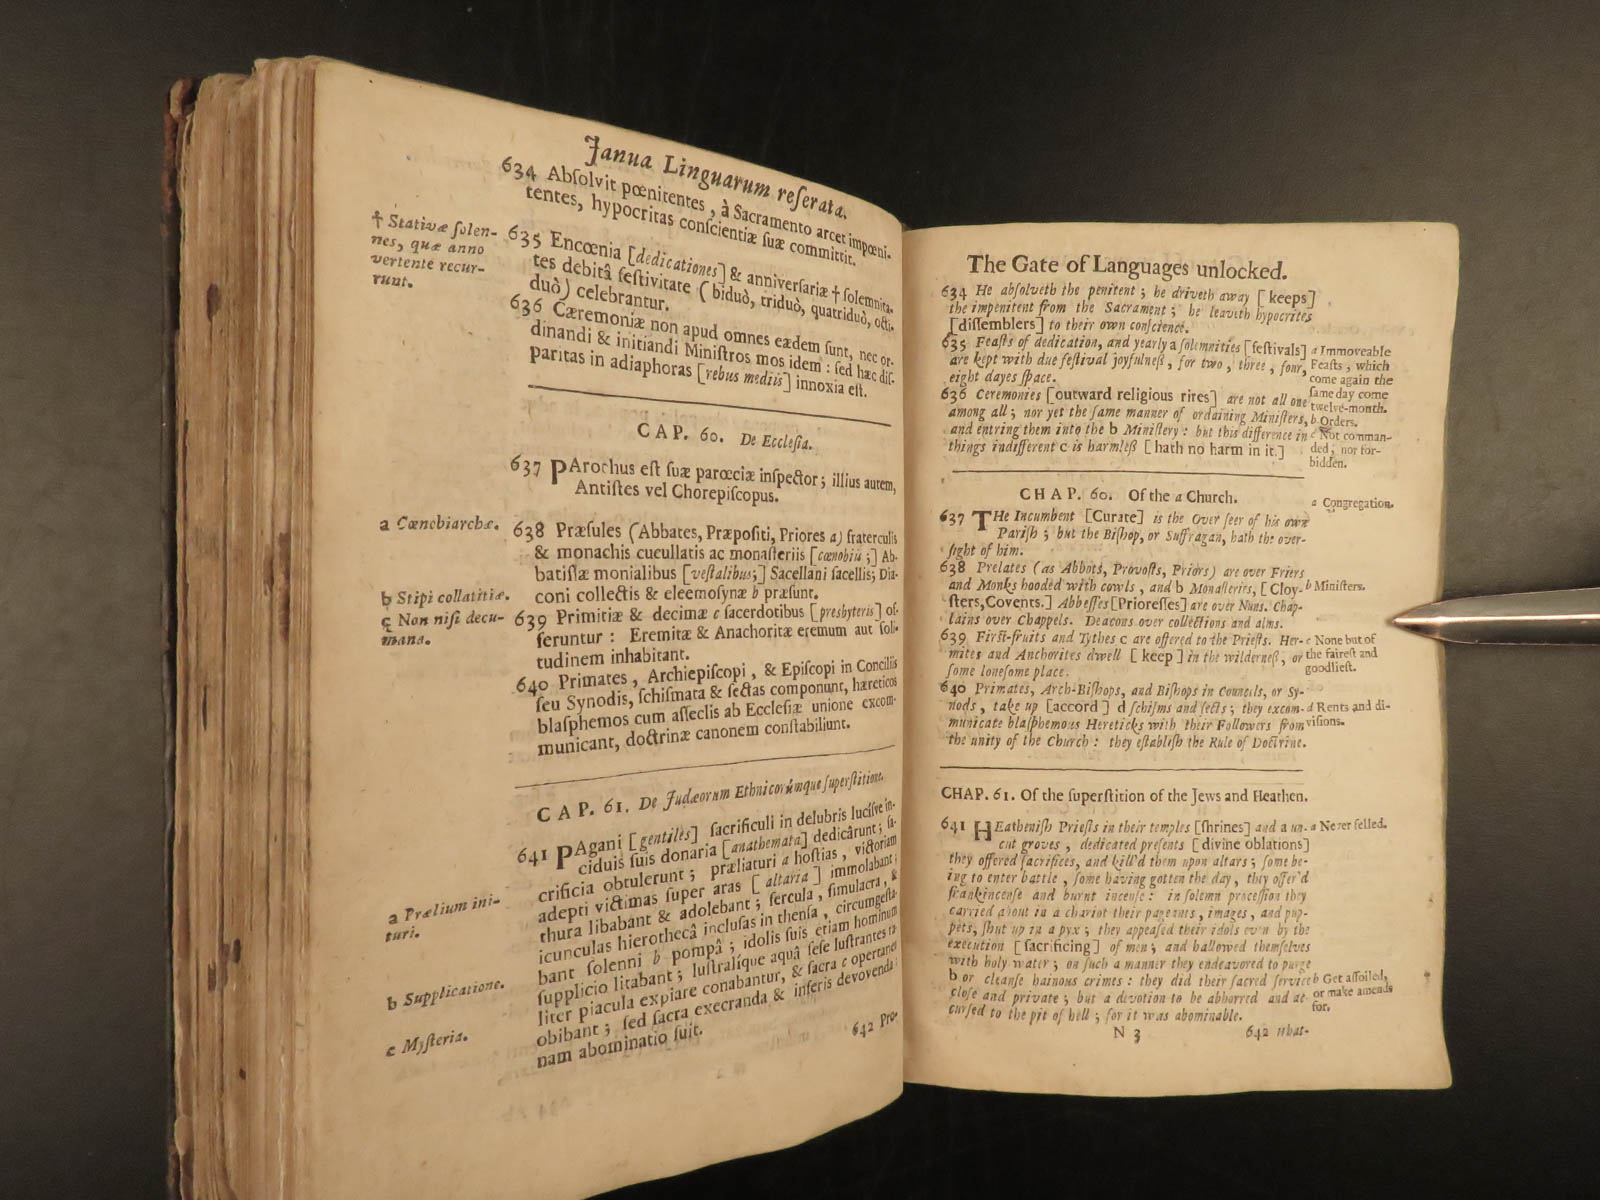 Janua Linguarum reſerata.
634 Abſolvit pœnitentes, à Sacramento arcet impœni-
tentes, hypocritas conſcientiæ ſuæ committit.
635 Encœnia [dedicationes] & anniverſariæ † ſolemnita-
tes debitâ feſtivitate (biduò, triduò, quatriduò, octi-
duò) celebrantur.
636 Cæremoniæ non apud omnes eædem ſunt, nec or-
dinandi & initiandi Miniſtros mos idem : ſed hæc diſ-
paritas in adiaphoras [rebus mediis] innoxia eſt.
† Stativæ ſolen-
nes, quæ anno
vertente recur-
runt.
CAP. 60. De Eccleſia.
637 PArochus eſt ſuæ parœciæ inſpector; illius autem,
Antiſtes vel Chorepiſcopus.
638 Præſules (Abbates, Præpoſiti, Priores a) fraterculis
& monachis cucullatis ac monaſteriis [cœnobiis;] Ab-
batiſſæ monialibus [veſtalibus;] Sacellani ſacellis; Dia-
coni collectis & eleemoſynæ b præſunt.
639 Primitiæ & decimæ c ſacerdotibus [presbyteris] of-
feruntur : Eremitæ & Anachoritæ eremum aut ſoli-
tudinem inhabitant.
640 Primates, Archiepiſcopi, & Epiſcopi in Conciliis
ſeu Synodis, ſchiſmata & ſectas componunt, hæreticos
blaſphemos cum aſſeclis ab Eccleſiæ unione excom-
municant, doctrinæ canonem conſtabiliunt.
a Cœnobiarchæ.
b Stipi collatitiæ.
c Non niſi decu-
mana.
CAP. 61. De Judæorum Ethnicorúmque ſuperſtitione.
641 PAgani [gentiles] ſacrificuli in delubris luciſve in-
ciduis ſuis donaria [anathemata] dedicârunt; ſa-
crificia obtulerunt; præliaturi a hoſtias, victoriam
adepti victimas ſuper aras [altaria] immolabant;
thura libabant & adolebant; fercula, ſimulacra, &
icunculas hierothecâ incluſas in thenſa, circumgeſta-
bant ſolenni b pompâ; idolis ſuis etiam hominum
ſupplicio litabant; luſtralíque aquâ ſeſe luſtrantes ta-
liter piacula expiare conabantur, & ſacra c opertanei
obibant; ſed ſacra execranda & inferis devovenda:
nam abominatio fuit.
642 Pro-
a Prælium ini-
turi.
b Supplicatione.
c Myſteria.
The Gate of Languages unlocked.
634 He abſolveth the penitent; he driveth away [keeps]
the impenitent from the Sacrament; he leaveth hypocrites
[diſſemblers] to their own conſcience.
635 Feaſts of dedication, and yearly a ſolemnities [feſtivals]
are kept with due feſtival joyfulneſs, for two, three, four,
eight dayes ſpace.
636 Ceremonies [outward religious rites] are not all one
among all; nor yet the ſame manner of ordaining Miniſters,
and entring them into the b Miniſtery : but this difference in
things indifferent c is harmleſs [hath no harm in it.]
a Immoveable
Feaſts, which
come again the
ſame day come
twelve-month.
b Orders.
c Not comman-
ded, nor for-
bidden.
CHAP. 60. Of the a Church.
637 THe Incumbent [Curate] is the Over ſeer of his own
Pariſh; but the Biſhop, or Suffragan, hath the over-
ſight of him.
638 Prelates (as Abbots, Provoſts, Priors) are over Friers
and Monks hooded with cowls, and b Monaſteries, [Cloy-
ſters, Covents.] Abbeſſes [Prioreſſes] are over Nuns. Chap-
tains over Chappels. Deacons over collections and alms.
639 Firſt-fruits and Tythes c are offered to the Prieſts. Her-
mites and Anchorites dwell [keep] in the wilderneſs, or
ſome loneſome place.
640 Primates, Arch-Biſhops, and Biſhops in Councils, or Sy-
nods, take up [accord] d ſchiſms and ſects; they excom-
municate blaſphemous Hereticks with their Followers from
the unity of the Church : they eſtabliſh the Rule of Doctrine.
a Congregation.
b Miniſters.
c None but of
the faireſt and
goodlieſt.
d Rents and di-
viſions.
CHAP. 61. Of the ſuperſtition of the Jews and Heathen.
641 HEatheniſh Prieſts in their temples [ſhrines] and a un-
cut groves, dedicated preſents [divine oblations]
they offered ſacrifices, and kill'd them upon altars; ſome be-
ing to enter battle, ſome having gotten the day, they offer'd
frankincenſe and burnt incenſe: in ſolemn proceſſion they
carried about in a chariot their pageants, images, and pup-
pets, ſhut up in a pyx; they appeaſed their idols ev'n by the
execution [ſacrificing] of men; and hallowed themſelves
with holy water; on ſuch a manner they endeavored to purge
b or cleanſe hainous crimes : they did their ſacred ſervice
cloſe and private; but a devotion to be abhorred and ac-
curſed to the pit of hell; for it was abominable.
N 3 642 What-
a Never felled.
b Get aſſoiled,
or make amends
for.